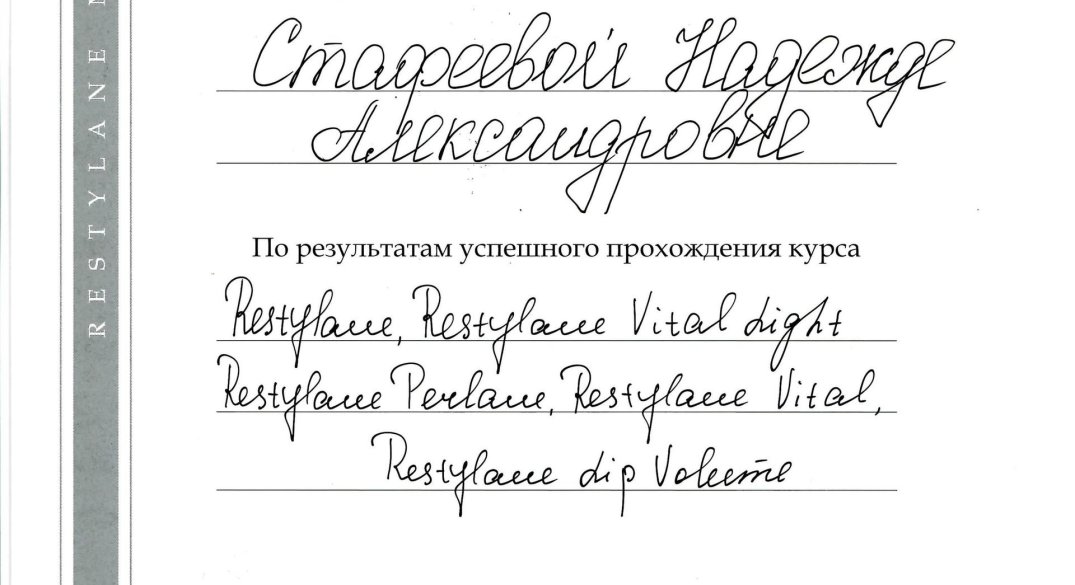 RESTYLANE
Стафеевой Надежде
Александровне
По результатам успешного прохождения курса
Restylane, Restylane Vital Light
Restylane Perlane, Restylane Vital,
Restylane Lip Volume